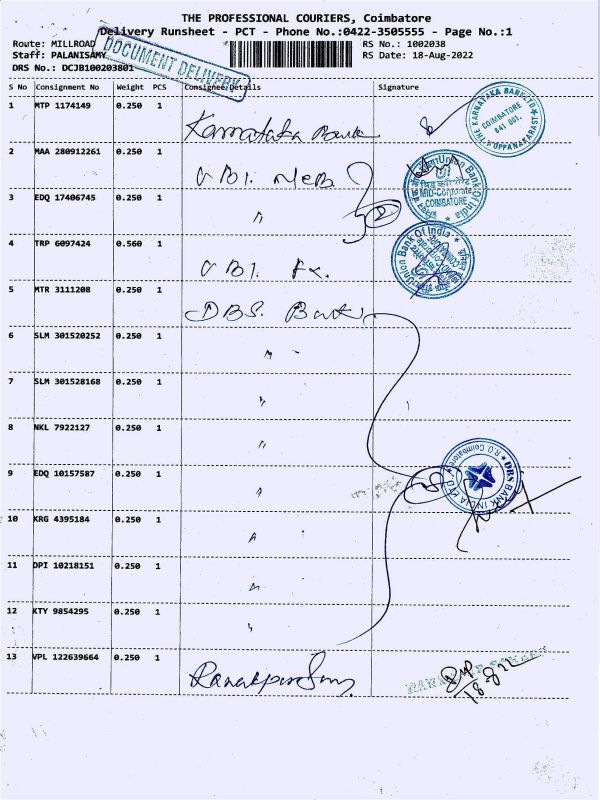 THE PROFESSIONAL COURIERS, Coimbatore
Delivery Runsheet - PCT - Phone No.:0422-3505555 - Page No.:1
Route: MILLROAD
RS No.: 1002038
Staff: PALANISAMY
RS Date: 18-Aug-2022
DRS No.: DCJB100203801
DOCUMENT DELIVERY
S No Consignment No Weight PCS Consignee Details Signature
1 MTP 1174149 0.250 1 Karnataka Bank
THE KARNATAKA BANK LTD COIMBATORE 641 001.
2 MAA 280912261 0.250 1 UBI. MCB
Union Bank Of India MID-Corporate COIMBATORE
3 EDQ 17406745 0.250 1 〃
2
4 TRP 6097424 0.560 1 UBI. Fx.
Union Bank Of India
5 MTR 3111208 0.250 1 DBS. Bank
6 SLM 301520252 0.250 1 〃
7 SLM 301528168 0.250 1 〃
8 NKL 7922127 0.250 1 〃
9 EDQ 10157587 0.250 1 〃
DBS BANK INDIA LTD R.O. Coimbatore
10 KRG 4395184 0.250 1 〃
11 DPI 10218151 0.250 1 〃
12 KTY 9854295 0.250 1 〃
13 VPL 122639664 0.250 1
18-8-22